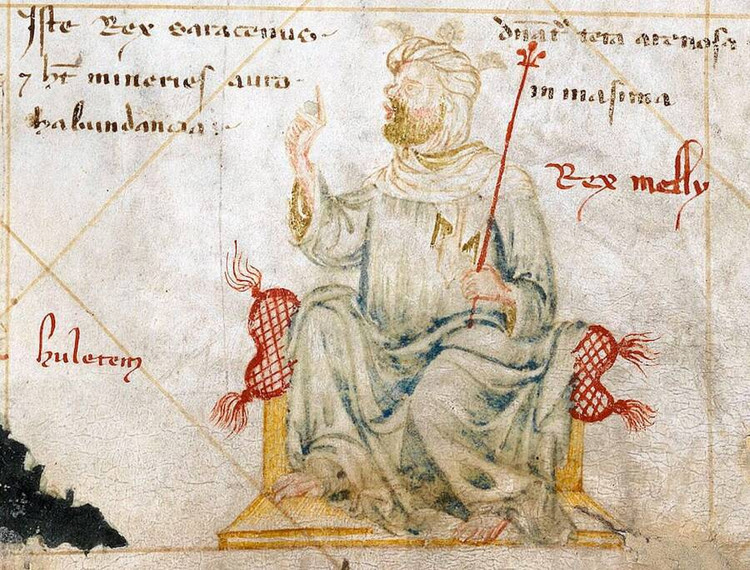 Iste Rex saracenus
⁊ ht mineries auro
habundancia
dnat' tera arenosa
in masima
Rex melly
huletem